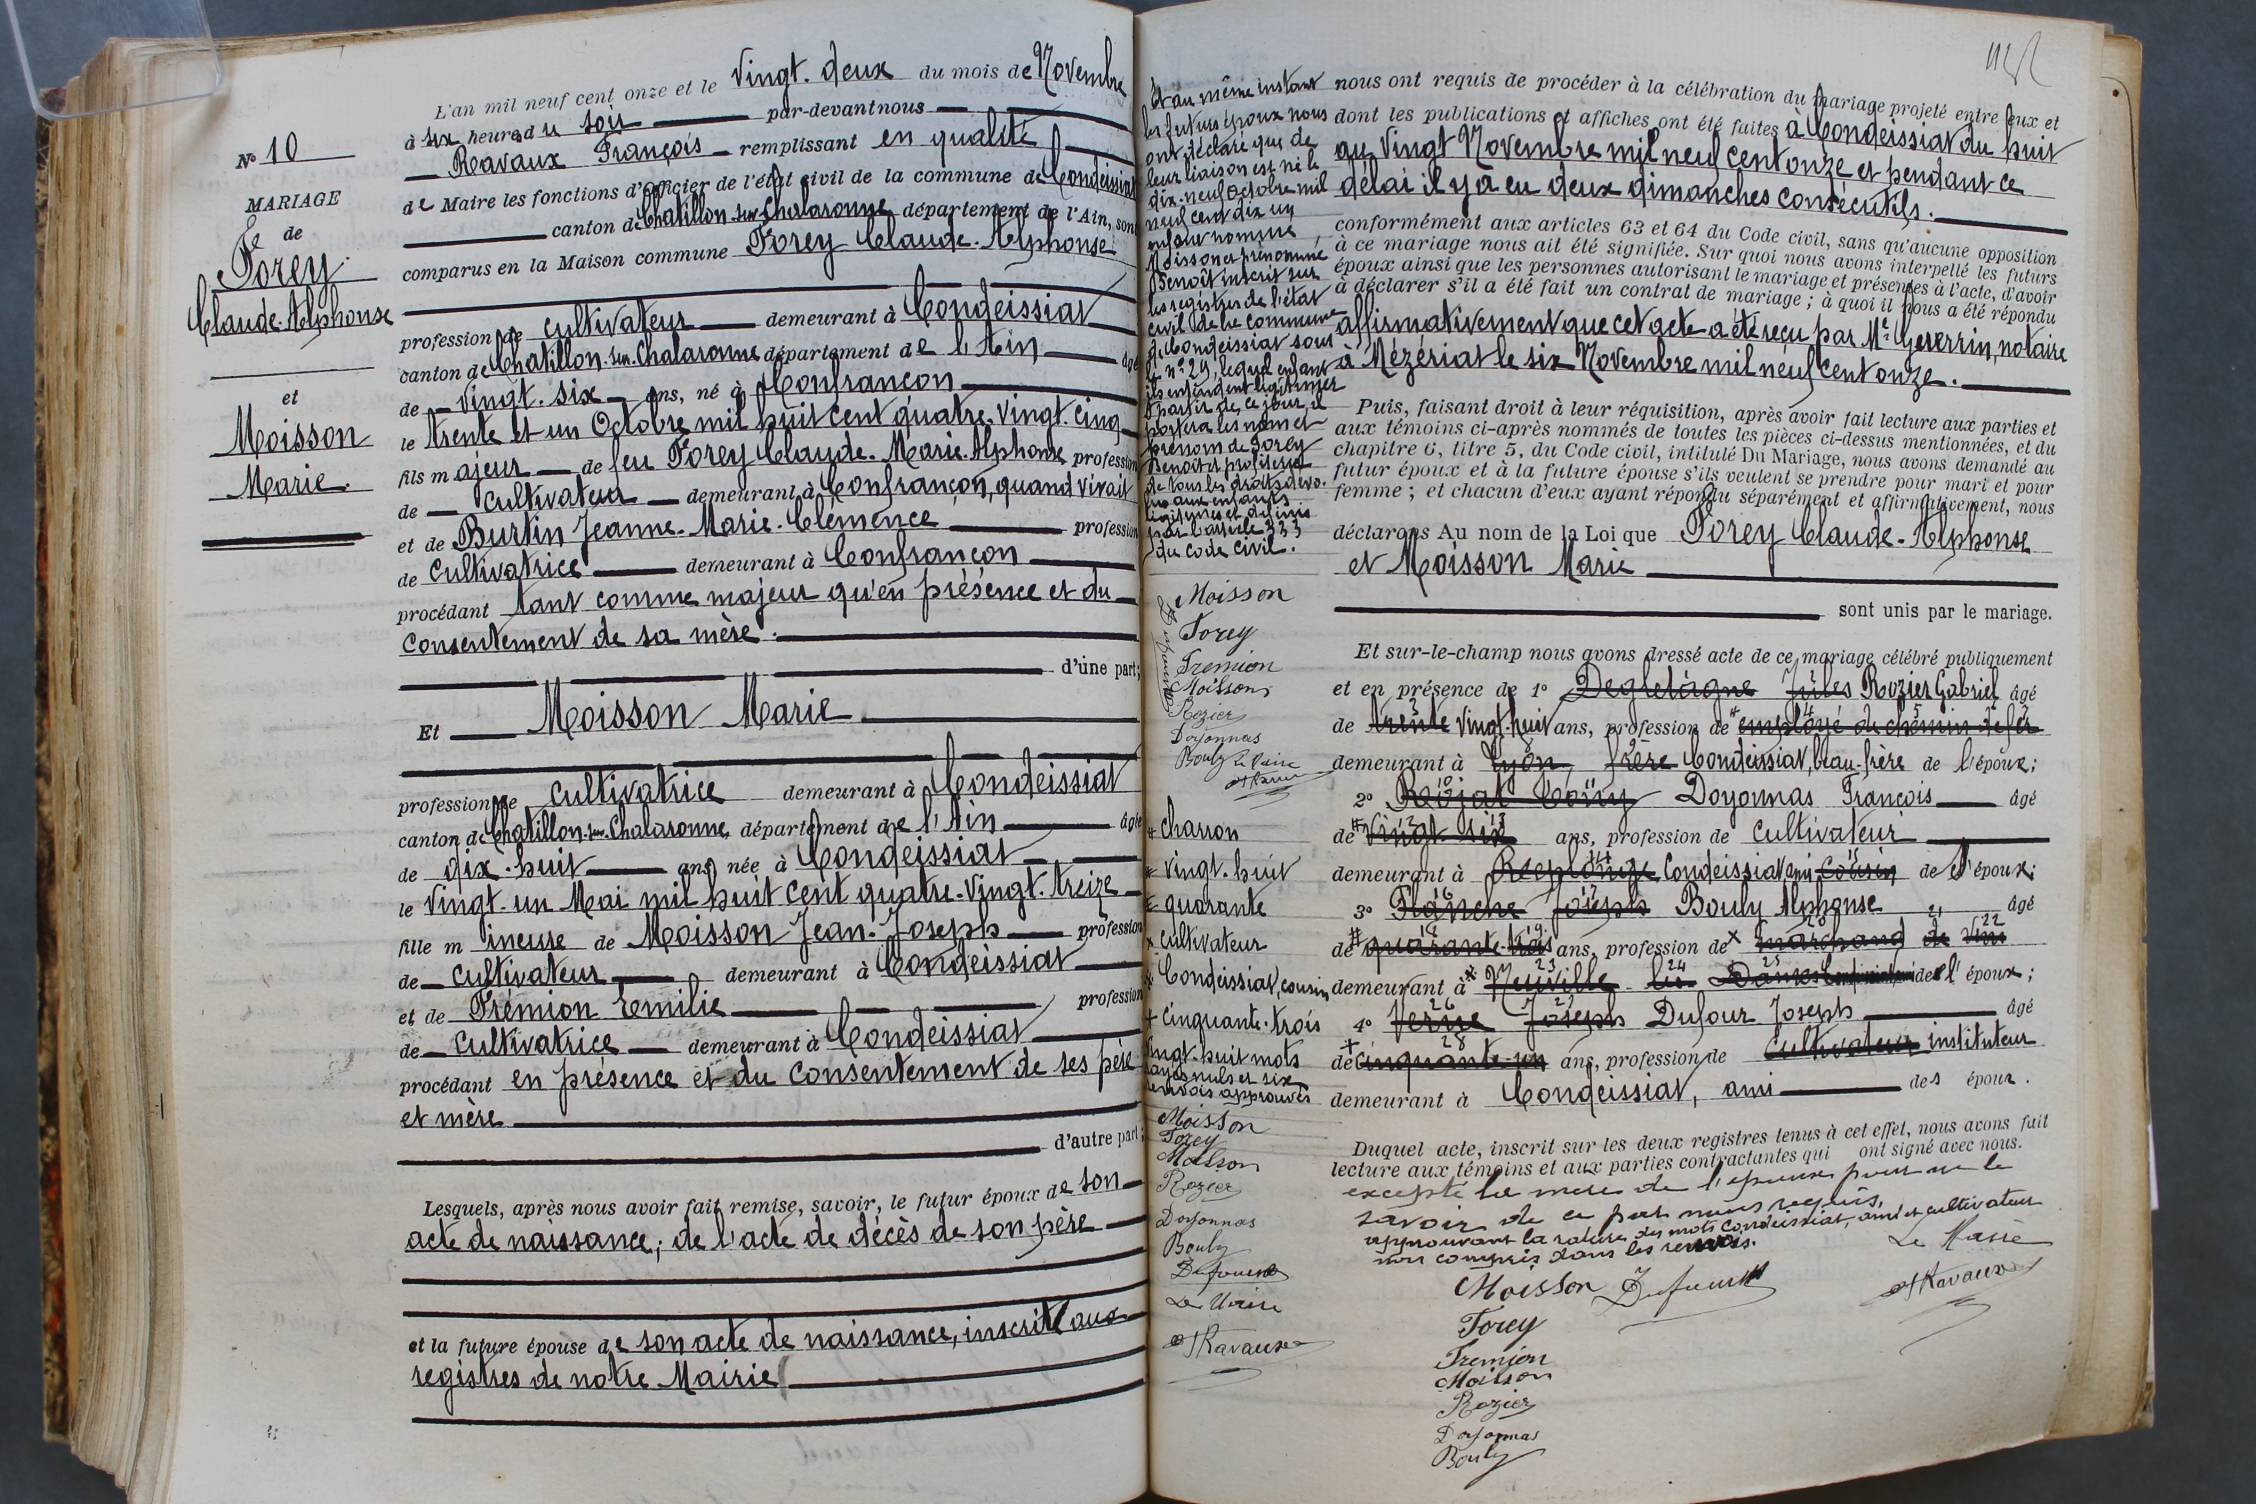 N° 10
MARIAGE
de
Forey
Claude-Alphonse
et
Moisson
Marie.
L'an mil neuf cent onze et le Vingt-deux du mois de Novembre
à six heures du soir par-devant nous
Ravaux François remplissant en qualité
de Maire les fonctions d'officier de l'état civil de la commune de Condeissiat
canton de Chatillon-sur-Chalaronne département de l'Ain, sont
comparus en la Maison commune Forey Claude-Alphonse
profession de cultivateur demeurant à Condeissiat
canton de Chatillon-sur-Chalaronne département de l'Ain âgé
de Vingt-six ans, né à Confrançon
le trente et un Octobre mil huit cent quatre-vingt-cinq
fils majeur de feu Forey Claude-Marie-Alphonse profession
de cultivateur demeurant à Confrançon, quand vivait
et de Burtin Jeanne-Marie-Clémence profession
de Cultivatrice demeurant à Confrançon
procédant tant comme majeur qu'en présence et du
consentement de sa mère.
d'une part;
Et Moisson Marie
profession de cultivatrice demeurant à Condeissiat
canton de Chatillon-sur-Chalaronne, département de l'Ain âgée
de dix-huit ans, née à Condeissiat
le Vingt-un Mai mil huit cent quatre-vingt-treize
fille mineure de Moisson Jean-Joseph profession
de cultivateur demeurant à Condeissiat
et de Frémion Emilie profession
de Cultivatrice demeurant à Condeissiat
procédant en présence et du consentement de ses père
et mère
d'autre part;
Lesquels, après nous avoir fait remise, savoir, le futur époux de son
acte de naissance; de l'acte de décès de son père
et la future épouse de son acte de naissance, inscrit aux
registres de notre Mairie
Et au même instant
les futurs époux nous
ont déclaré que de
leur liaison est né le
dix-neuf Octobre mil
neuf cent dix un
enfant nommé
Moisson et prénommé
Benoît inscrit sur
les registres de l'état
civil de la commune
de Condeissiat sous
le n° 29, lequel enfant
ils entendent légitimer
A partir de ce jour, il
portera les nom et
prénom de Forey
Benoît et profitera
de tous les droits dévo-
lus aux enfants
légitimes et définis
par l'article 333
du Code Civil.
Moisson
Forey
Fremion
Moisson
Rozier
Doyonnas
Bouly Le Maire
Ravaux
# charron
# vingt-huit
# quarante
x cultivateur
x Condeissiat, cousin
+ cinquante-trois
Vingt-huit mots
rayés nuls et six
renvois approuvés
Moisson
Forey
Moisson
Rozier
Doyonnas
Bouly
Dufour
Le Maire
Ravaux
nous ont requis de procéder à la célébration du mariage projeté entre eux et
dont les publications et affiches ont été faites à Condeissiat du huit
au Vingt Novembre mil neuf cent onze et pendant ce
délai il y a eu deux dimanches consécutifs.
conformément aux articles 63 et 64 du Code civil, sans qu'aucune opposition
à ce mariage nous ait été signifiée. Sur quoi nous avons interpellé les futurs
époux ainsi que les personnes autorisant le mariage et présentes à l'acte, d'avoir
à déclarer s'il a été fait un contrat de mariage; à quoi il nous a été répondu
affirmativement que cet acte a été reçu par Me Gverrin, notaire
à Mézériat le six Novembre mil neuf cent onze.
Puis, faisant droit à leur réquisition, après avoir fait lecture aux parties et
aux témoins ci-après nommés de toutes les pièces ci-dessus mentionnées, et du
chapitre 6, titre 5, du Code civil, intitulé Du Mariage, nous avons demandé au
futur époux et à la future épouse s'ils veulent se prendre pour mari et pour
femme; et chacun d'eux ayant répondu séparément et affirmativement, nous
déclarons Au nom de la Loi que Forey Claude-Alphonse
et Moisson Marie
sont unis par le mariage.
Et sur-le-champ nous avons dressé acte de ce mariage célébré publiquement
et en présence de 1° Degletagne Jules Rozier Gabriel âgé
de trente Vingt-huit ans, profession de # employé de chemin de fer
demeurant à Lyon, frère Condeissiat, beau-frère de l'époux;
2° Doyonnas François âgé
de # vingt-six ans, profession de cultivateur
demeurant à Replonge Condeissiat ami cousin de l'époux;
3° Planche Joseph Bouly Alphonse âgé
de # quarante-trois ans, profession de x marchand de vin
demeurant à x Neuville les Dames de l'époux;
4° Verne Joseph Dufour Joseph âgé
de + cinquante-un ans, profession de Cultivateur instituteur
demeurant à Condeissiat, ami des époux.
Duquel acte, inscrit sur les deux registres tenus à cet effet, nous avons fait
lecture aux témoins et aux parties contractantes qui ont signé avec nous.
excepté la mère de l'époux pour ne le
savoir de ce par nous requis,
approuvant la rature des mots condeissiat, ami et cultivateur
non compris dans les renvois.
Le Maire
Moisson Dufour Ravaux
Forey
Fremion
Moisson
Rozier
Doyonnas
Bouly